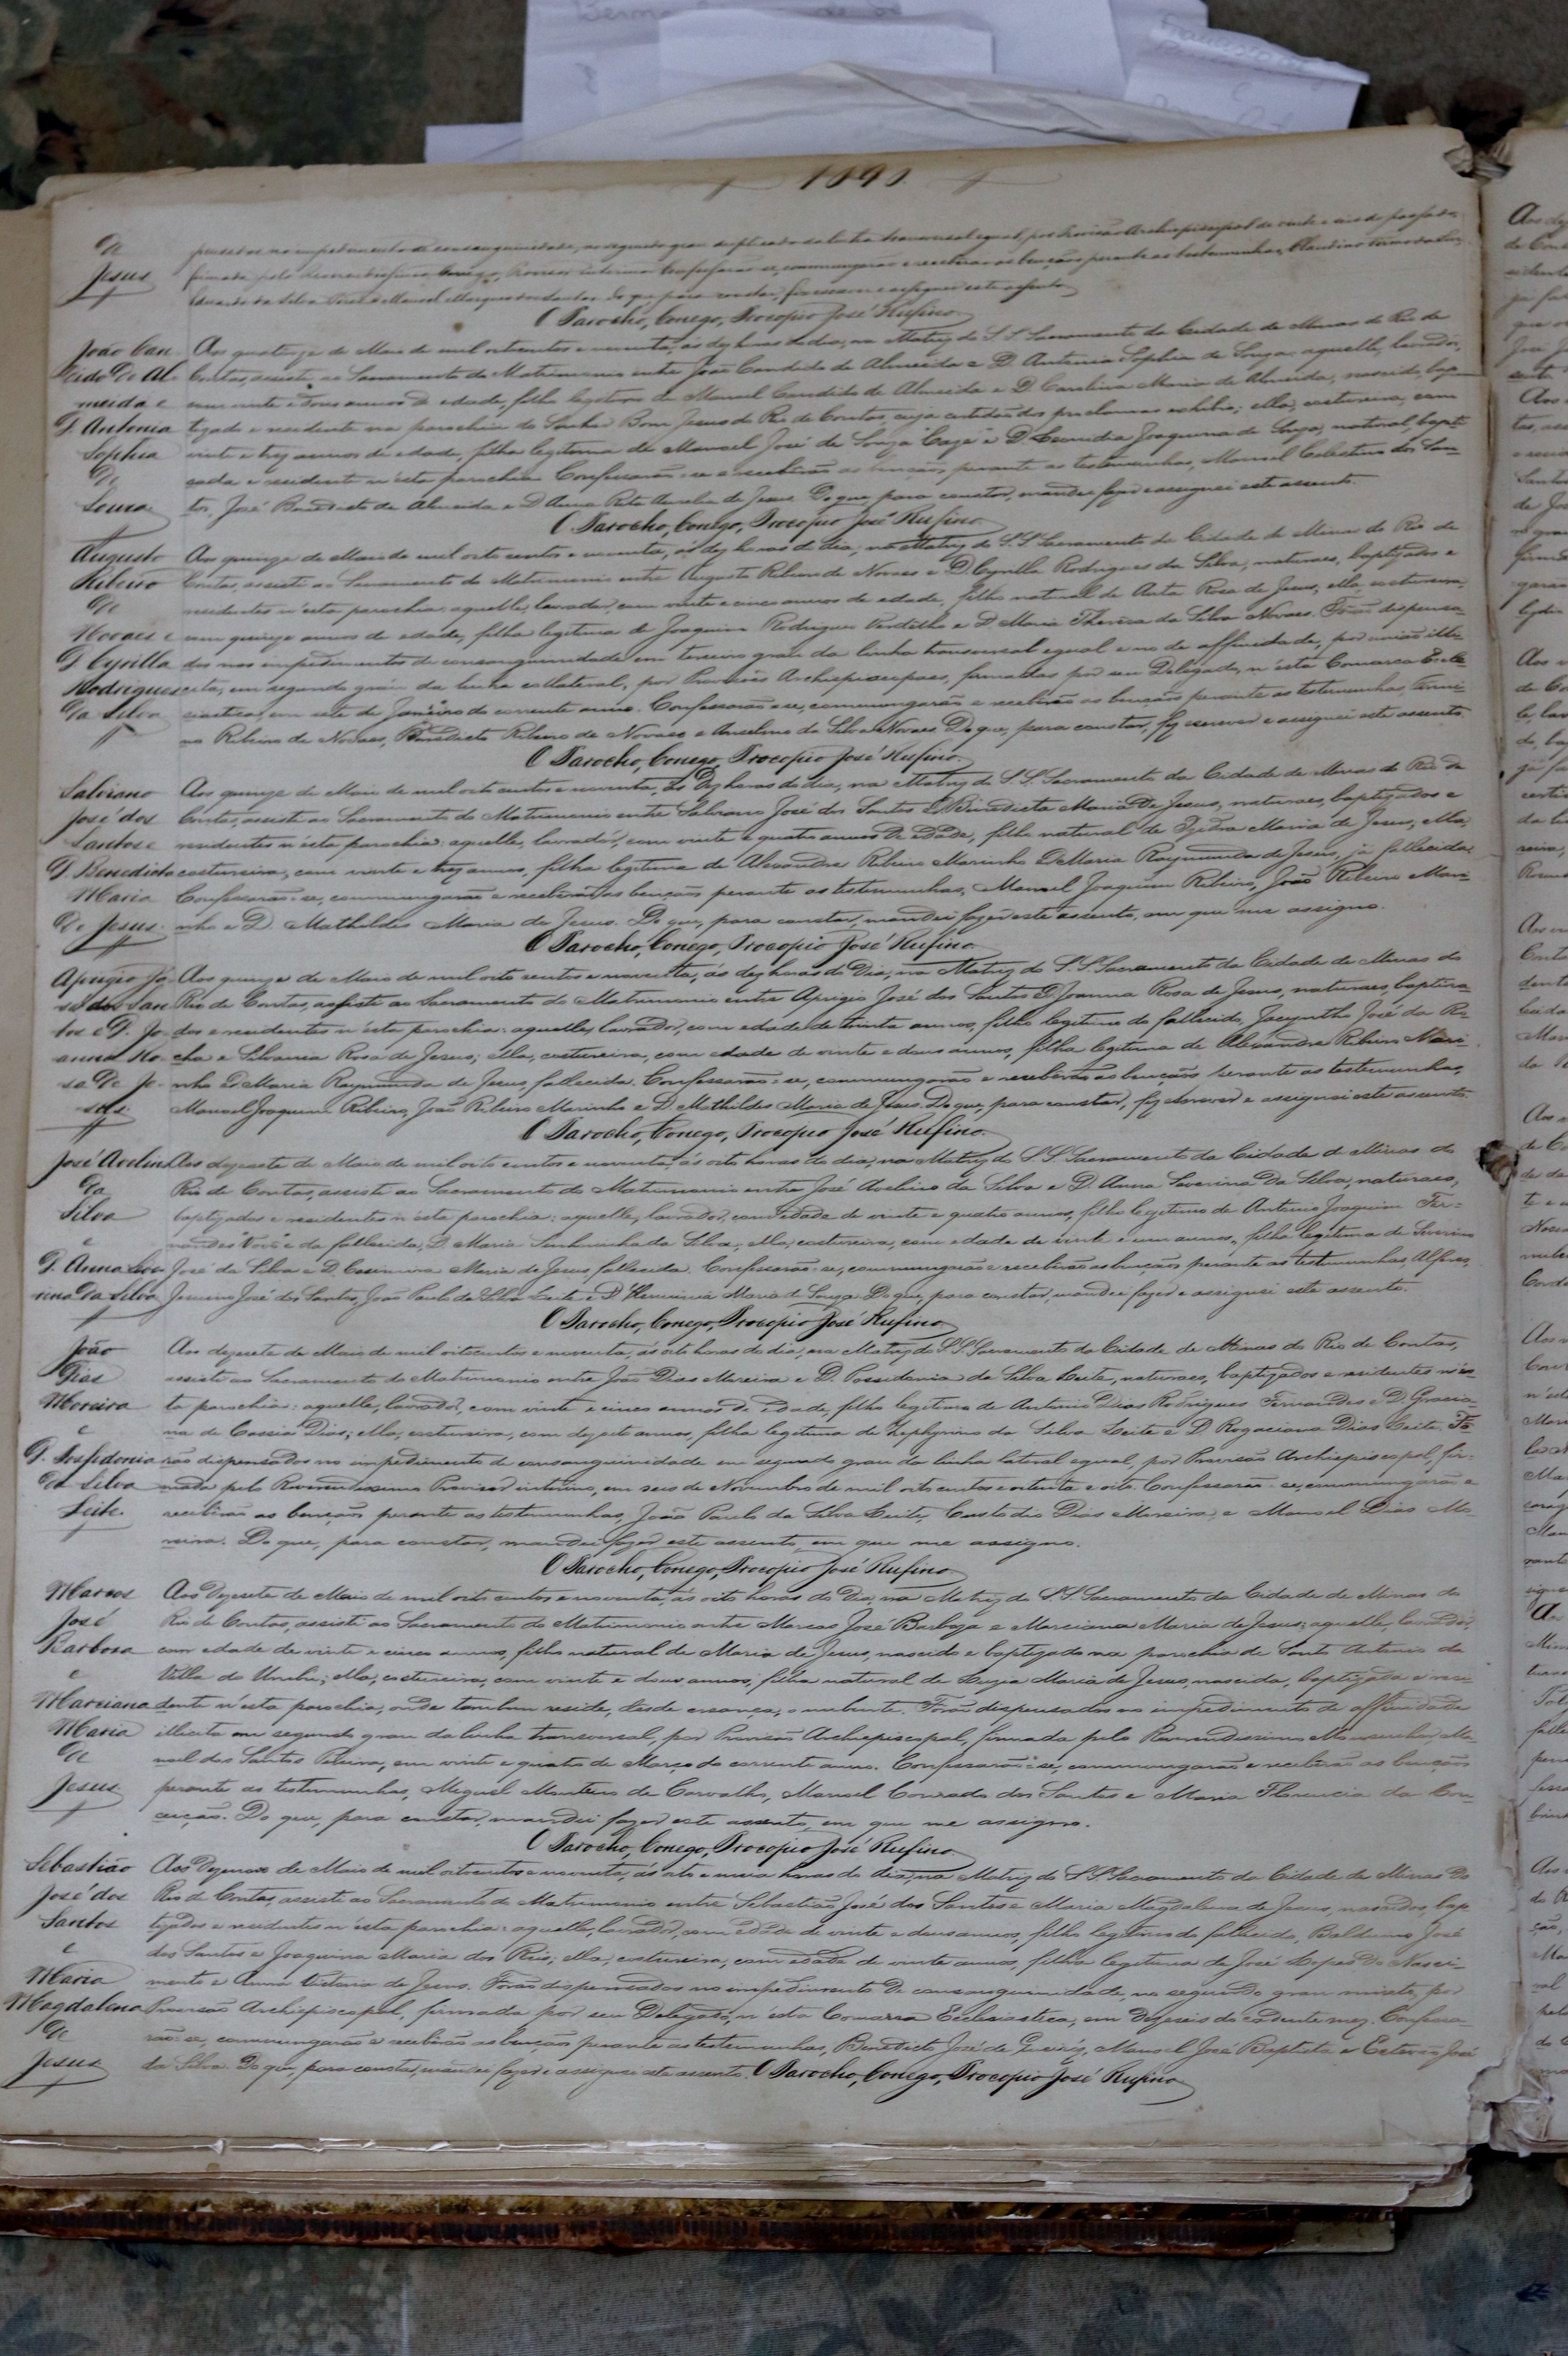 1890.
de
Jesus
pensados no impedimento de consanguinidade, no segundo grau duplicado da linha transversal egual, por Provisão Archiepiscopal de vinte e seis do passado,
firmada pelo Conego, Provisor interino. Confessarão-se, commungarão e receberão as bençãos perante as testemunhas,
da Silva e Manoel Marques dos Santos. Do que, para constar, fiz escrever e assignei este assento.
O Parocho, Conego, Procopio José Rufino.
João Can-
dido de Al-
meida e
D. Antonia
Sophia
de
Souza
Aos quatorze de Maio de mil oitocentos e noventa, ás dez horas do dia, na Matriz do S. S. Sacramento da Cidade de Minas do Rio de
Contas, assisti ao Sacramento do Matrimonio entre João Candido de Almeida e D. Antonia Sophia de Souza: aquelle, lavrador,
com vinte e dous annos de edade, filho legitimo de Manoel Candido de Almeida e D. Carolina Maria de Almeida, nascido, bap-
tizado e residente na parochia do Senhor Bom Jesus do Rio de Contas, cuja certidão dos proclamas exhibio; ella, costureira, com
vinte e trez annos de edade, filha legitima de Manoel José de Souza "Cazé" e D. Leonidia Joaquina de Souza, natural, bapti-
sada e residente n'esta parochia. Confessarão-se e receberão as bençãos perante as testemunhas, Manoel Celestino dos San-
tos, José Benedicto de Almeida e D. Anna Rita Aurelia de Jesus. Do que, para constar, mandei fazer e assignei este assento.
O Parocho, Conego, Procopio José Rufino.
Augusto
Ribeiro
de
Novaes e
D. Cyrilla
Rodrigues
da Silva
Aos quinze de Maio de mil oito centos e noventa, ás dez horas do dia, na Matriz do S. S. Sacramento da Cidade de Minas do Rio de
Contas, assisti ao Sacramento do Matrimonio entre Augusto Ribeiro de Novaes e D. Cyrilla Rodrigues da Silva, naturaes, baptizados e
residentes n'esta parochia: aquelle, lavrador, com vinte e cinco annos de edade, filho natural de Anta Rosa de Jesus, ella, costureira,
com quinze annos de edade, filha legitima de Joaquim Rodrigues Verdilho e D. Maria Thereza da Silva Novaes. Forão dispensa-
dos nos impedimentos de consanguinidade em terceiro grau da linha transversal egual e no de affinidade, por união illi-
cita, em segundo grau da linha collateral, por Provisões Archiepiscopaes, firmadas por seu Delegado, n'esta Comarca Eccle-
siastica, em sete de Janeiro do corrente anno. Confessarão-se, commungarão e receberão as bençãos perante as testemunhas, Firmi-
no Ribeiro de Novaes, Benedicto Ribeiro de Novaes e Anselmo da Silva Novaes. Do que, para constar, fiz escrever e assignei este assento.
O Parocho, Conego, Procopio José Rufino.
Salviano
José dos
Santos e
D. Benedicta
Maria
de Jesus
Aos quinze de Maio de mil oito centos e noventa, ás dez horas do dia, na Matriz do S. S. Sacramento da Cidade de Minas do Rio de
Contas, assisti ao Sacramento do Matrimonio entre Salviano José dos Santos e D. Benedicta Maria de Jesus, naturaes, baptizados e
residentes n'esta parochia: aquelle, lavrador, com vinte e quatro annos de edade, filho natural de Izidra Maria de Jesus, ella,
costureira, com vinte e trez annos, filha legitima de Alexandre Ribeiro Marinho e D. Maria Raymunda de Jesus, já fallecida.
Confessarão-se, commungarão e receberão as bençãos perante as testemunhas, Manoel Joaquim Ribeiro, João Ribeiro Mari-
nho e D. Mathildes Maria de Jesus. Do que, para constar, mandei fazer este assento, em que me assigno.
O Parocho, Conego, Procopio José Rufino.
Aprigio Jo-
sé dos San-
tos e D. Jo-
anna Ro-
sa de Je-
sus.
Aos quinze de Maio de mil oito centos e noventa, ás dez horas do dia, na Matriz do S. S. Sacramento da Cidade de Minas do
Rio de Contas, assisti ao Sacramento do Matrimonio entre Aprigio José dos Santos e D. Joanna Rosa de Jesus, naturaes, baptiza-
dos e residentes n'esta parochia: aquelle, lavrador, com edade de trinta annos, filho legitimo do fallecido, Jacyntho José da Ro-
cha e Silvania Rosa de Jesus; ella, costureira, com edade de vinte e dous annos, filha legitima de Alexandre Ribeiro Mari-
nho e D. Maria Raymunda de Jesus, fallecida. Confessarão-se, commungarão e receberão as bençãos perante as testemunhas,
Manoel Joaquim Ribeiro, João Ribeiro Marinho e D. Mathildes Maria de Jesus. Do que, para constar, fiz escrever e assignei este assento.
O Parocho, Conego, Procopio José Rufino.
José Avelino
da
Silva
e
D. Anna Seve-
rina da Silva
Aos dezesete de Maio de mil oito centos e noventa, ás oito horas do dia, na Matriz do S. S. Sacramento da Cidade de Minas do
Rio de Contas, assisti ao Sacramento do Matrimonio entre José Avelino da Silva e D. Anna Severina da Silva, naturaes,
baptizados e residentes n'esta parochia: aquelle, lavrador, com edade de vinte e quatro annos, filho legitimo de Antonio Joaquim Fer-
nandes e da fallecida, D. Maria Senhorinha da Silva; ella, costureira, com edade de vinte e um annos, filha legitima de Severino
José da Silva e D. Casimira Maria de Jesus, fallecida. Confessarão-se, commungarão e receberão as bençãos perante as testemunhas, Alferes,
Jesuino José dos Santos, João Paulo da Silva Leite e D. Herminia Maria de Souza. Do que, para constar, mandei fazer e assignei este assento.
O Parocho, Conego, Procopio José Rufino.
João
Dias
Moreira
e
D. Possidonia
da Silva
Leite.
Aos dezesete de Maio de mil oitocentos e noventa, ás oito horas do dia, na Matriz do S. S. Sacramento da Cidade de Minas do Rio de Contas,
assisti ao Sacramento do Matrimonio entre João Dias Moreira e D. Possidonia da Silva Leite, naturaes, baptizados e residentes n'es-
ta parochia: aquelle, lavrador, com vinte e cinco annos de edade, filho legitimo de Antonio Dias Rodrigues Fernandes e D. Gracia-
na de Cassia Dias; ella, costureira, com dezoito annos, filha legitima de Zephyrino da Silva Leite e D. Rogaciana Dias Leite. Fo-
rão dispensados no impedimento de consanguinidade em segundo grau da linha lateral egual, por Provisão Archiepiscopal, fir-
mada pelo Reverendissimo Provisor interino, em seis de Novembro de mil oito centos e oitenta e oito. Confessarão-se, commungarão e
receberão as bençãos perante as testemunhas, João Paulo da Silva Leite, Custodio Dias Moreira, e Manoel Dias Mo-
reira. Do que, para constar, mandei fazer este assento, em que me assigno.
O Parocho, Conego, Procopio José Rufino.
Marcos
José
Barbosa
e
Marciana
Maria
de
Jesus
Aos dezesete de Maio de mil oito centos e noventa, ás oito horas do dia, na Matriz do S. S. Sacramento da Cidade de Minas do
Rio de Contas, assisti ao Sacramento do Matrimonio entre Marcos José Barboza e Marciana Maria de Jesus: aquelle, lavrador,
com edade de vinte e cinco annos, filho natural de Maria de Jesus, nascido e baptizado na parochia de Santo Antonio da
Villa do Urubú; ella, costureira, com vinte e dous annos, filha natural de Luzia Maria de Jesus, nascida, baptizada e resi-
dente n'esta parochia, onde tambem reside, desde creança, o nubente. Forão dispensados no impedimento de affinidade
illicita em segundo grau da linha transversal, por Provisão Archiepiscopal, firmada pelo Reverendissimo Monsenhor, Ma-
noel dos Santos Pereira, em vinte e quatro de Março do corrente anno. Confessarão-se, commungarão e receberão as bençãos
perante as testemunhas, Miguel Monteiro de Carvalho, Manoel Conrado dos Santos e Maria Florencia da Con-
ceição. Do que, para constar, mandei fazer este assento, em que me assigno.
O Parocho, Conego, Procopio José Rufino.
Sebastião
José dos
Santos
e
Maria
Magdalena
de
Jesus
Aos dezenove de Maio de mil oitocentos e noventa, ás oito e meia horas do dia, na Matriz do S. S. Sacramento da Cidade de Minas do
Rio de Contas, assisti ao Sacramento do Matrimonio entre Sebastião José dos Santos e Maria Magdalena de Jesus, nascidos, bap-
tizados e residentes n'esta parochia: aquelle, lavrador, com edade de vinte e dous annos, filho legitimo do fallecido, Balduino José
dos Santos e Joaquina Maria dos Reis; ella, costureira, com edade de vinte annos, filha legitima de José Lopes do Nasci-
mento e Anna Victoria de Jesus. Forão dispensados no impedimento de consanguinidade, no segundo grau mixto, por
Provisão Archiepiscopal, firmada por seu Delegado, n'esta Comarca Ecclesiastica, em dezeseis do cadente mez. Confessa-
rão-se, commungarão e receberão as bençãos perante as testemunhas, Benedicto José de Queiroz, Manoel José Baptista e Estevão José
da Silva. Do que, para constar, mandei fazer e assignei este assento. O Parocho, Conego, Procopio José Rufino.